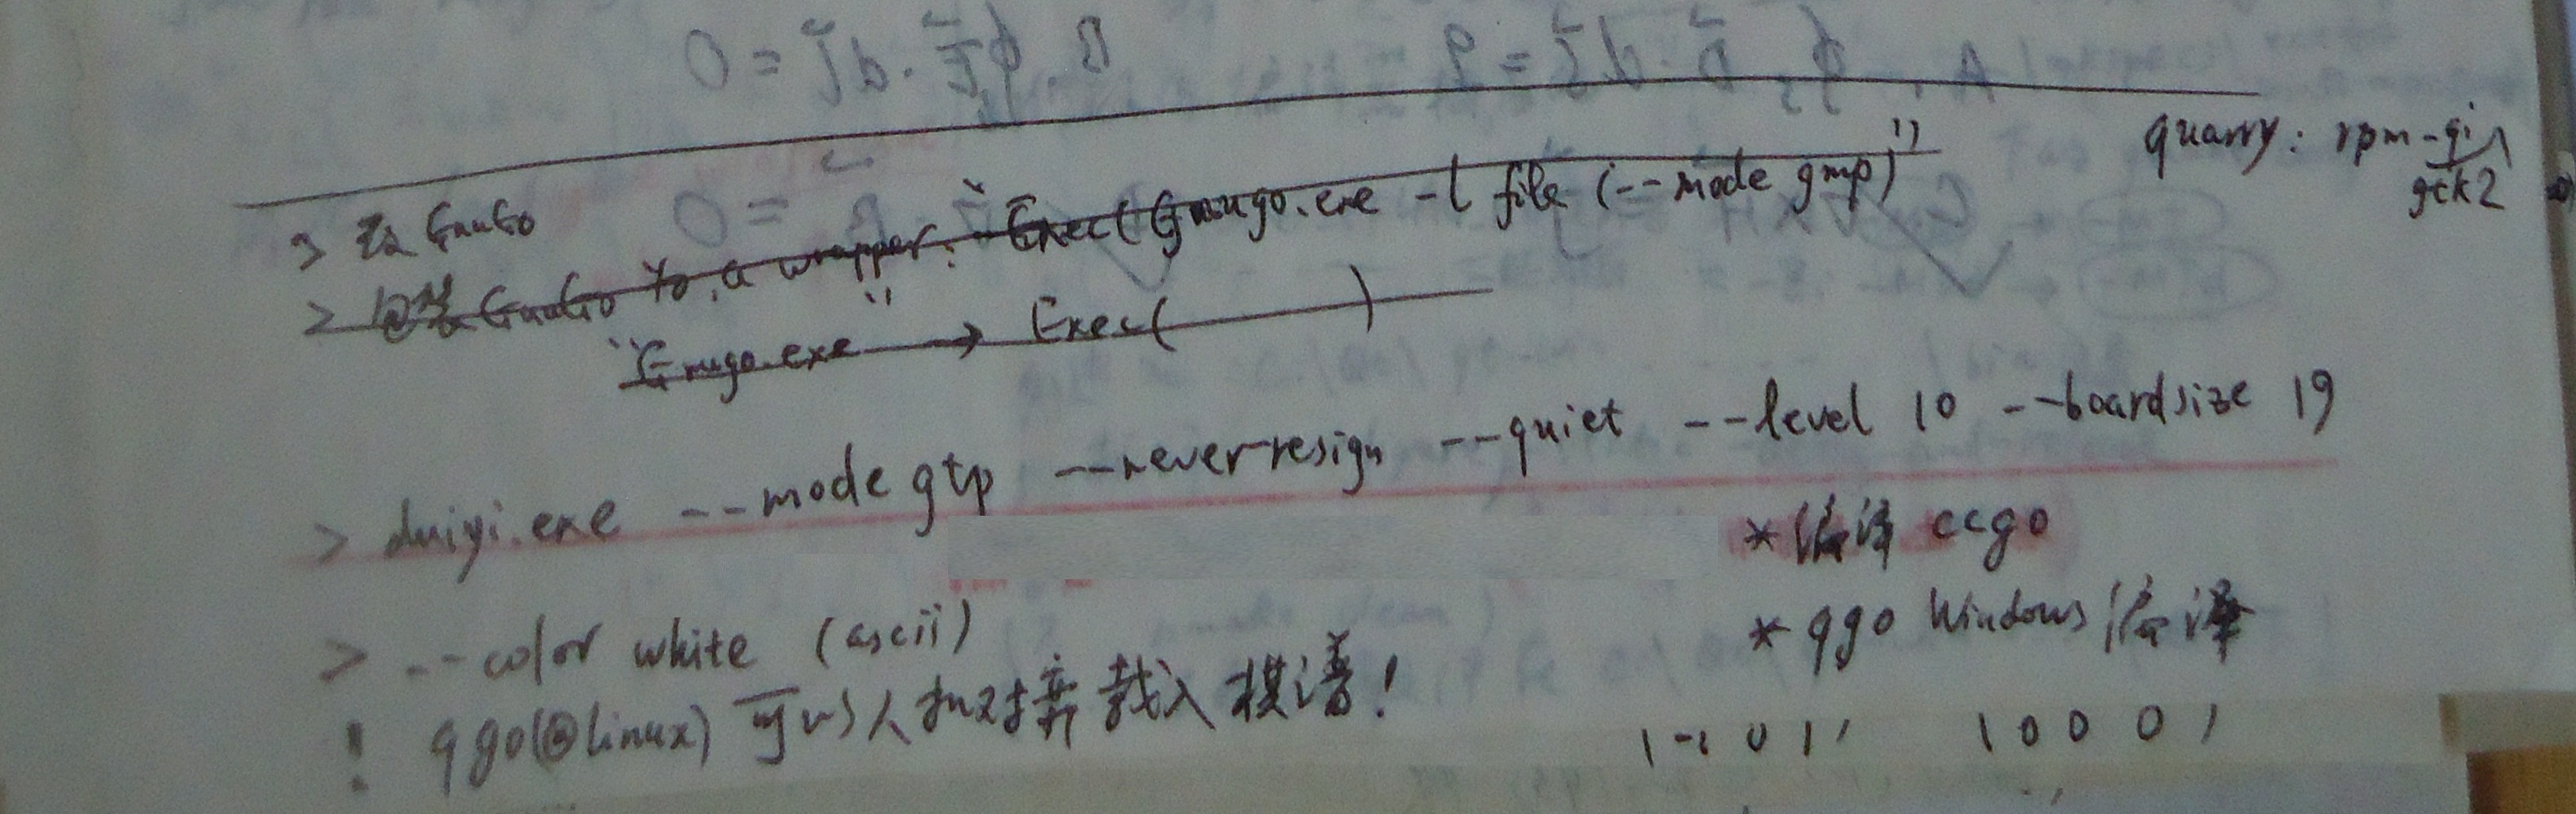 > 改 GnuGo
quarry: rpm -qi gtk2
> 包装 GnuGo to a wrapper: "Exec(Gnugo.exe -l file (--mode gmp)"
"Gnugo.exe" → Exec( )
> duiyi.exe --mode gtp --never-resign --quiet --level 10 --boardsize 19
* 编译 ccgo
> --color white (ascii)
* qgo Windows 编译
! qgo(@linux) 可以人机对弈载入棋谱!
1 0 0 0 1